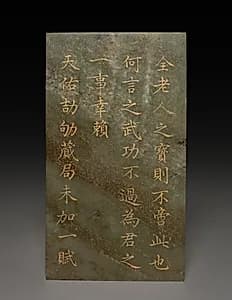 全老人之寶則不啻此也
何言之武功不過為君之
一事幸賴
天佑劼劬蕆局未加一賦